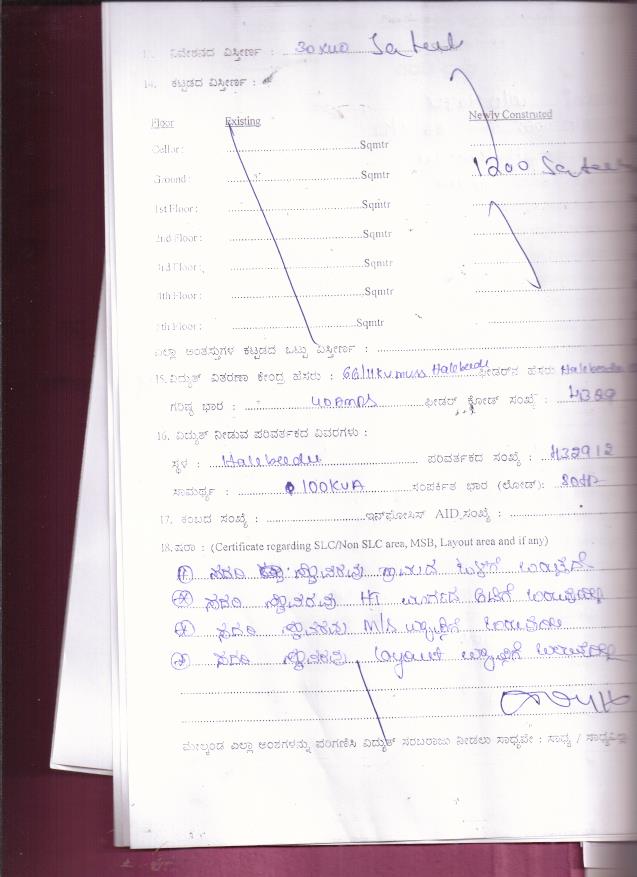 13. ನಿವೇಶನದ ವಿಸ್ತೀರ್ಣ : 30x40
14. ಕಟ್ಟಡದ ವಿಸ್ತೀರ್ಣ :
Floor Existing Newly Construted
Cellar : Sqmtr
Ground : Sqmtr 1200
1st Floor : Sqmtr
2nd Floor : Sqmtr
3rd Floor : Sqmtr
4th Floor : Sqmtr
5th Floor : Sqmtr
ಎಲ್ಲಾ ಅಂತಸ್ತುಗಳ ಕಟ್ಟಡದ ಒಟ್ಟು ವಿಸ್ತೀರ್ಣ :
15. ವಿದ್ಯುತ್ ವಿತರಣಾ ಕೇಂದ್ರ ಹೆಸರು : 66/11kv muss Halebeedu ಫೀಡರ್‌ನ ಹೆಸರು Halebeedu
ಗರಿಷ್ಠ ಭಾರ : 40 Amps ಫೀಡರ್ ಕೋಡ್ ಸಂಖ್ಯೆ :
16. ವಿದ್ಯುತ್ ನೀಡುವ ಪರಿವರ್ತಕದ ವಿವರಗಳು :
ಸ್ಥಳ : Halebeedu ಪರಿವರ್ತಕದ ಸಂಖ್ಯೆ : 432912
ಸಾಮರ್ಥ್ಯ : 100KVA ಸಂಪರ್ಕಿತ ಭಾರ (ಲೋಡ್):
17. ಕಂಬದ ಸಂಖ್ಯೆ : ಇನ್‌ಫೋಸಿಸ್ AID ಸಂಖ್ಯೆ :
18. ಷರಾ : (Certificate regarding SLC/Non SLC area, MSB, Layout area and if any)
ಸದರಿ ಸ್ಥಾವರವು ಗ್ರಾಮದ
ಸದರಿ ಸ್ಥಾವರವು HT ಮಾರ್ಗದ
ಸದರಿ ಸ್ಥಾವರವು M/S ವ್ಯಾಪ್ತಿಗೆ
ಸದರಿ ಸ್ಥಾವರವು layout ವ್ಯಾಪ್ತಿಗೆ
ಮೇಲ್ಕಂಡ ಎಲ್ಲಾ ಅಂಶಗಳನ್ನು ಪರಿಗಣಿಸಿ ವಿದ್ಯುತ್ ಸರಬರಾಜು ನೀಡಲು ಸಾಧ್ಯವೇ : ಸಾಧ್ಯ / ಸಾಧ್ಯವಿಲ್ಲ